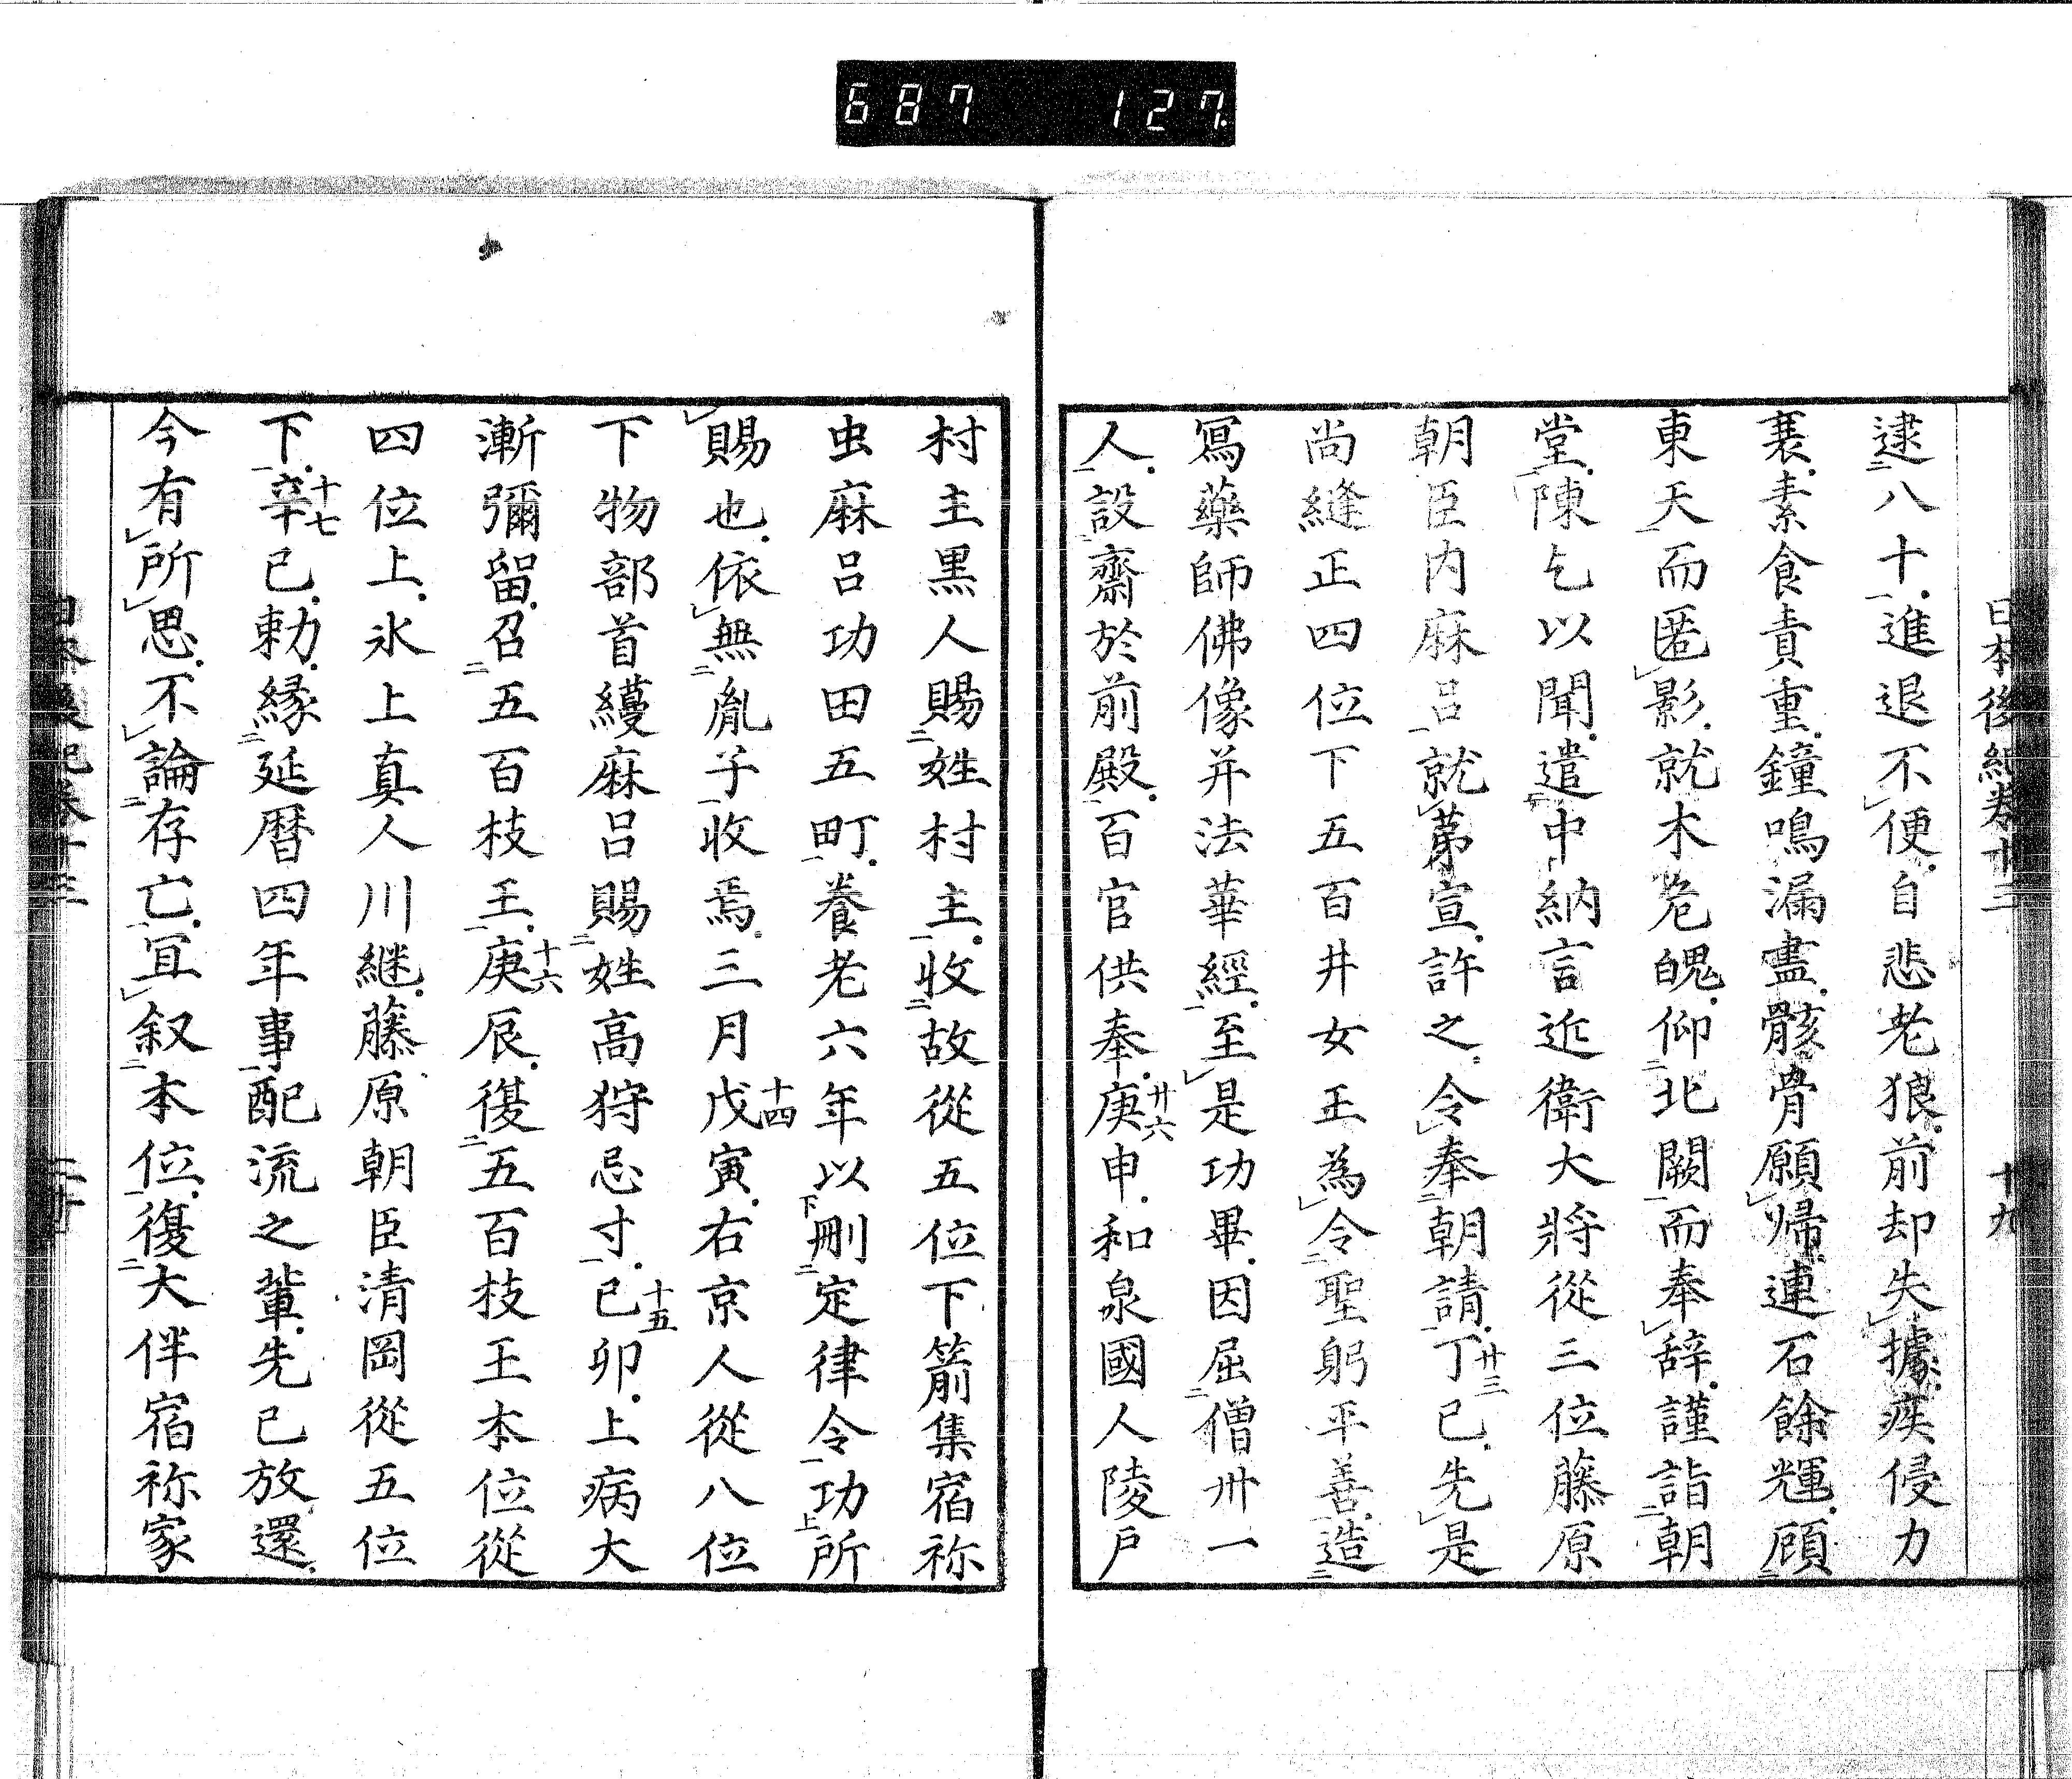 687 127
日本後紀卷十三 十九
逮八十進退不便自悲老狼前却失據疾侵力
衰素食責重鐘鳴漏盡骸骨願帰連石餘輝顧
東天而匿影就木危魄仰北闕而奉辞謹詣朝
堂陳乞以聞遣中納言近衛大將從三位藤原
朝臣内麻呂就第宣許之令奉朝請丁巳先是
廿三
尚縫正四位下五百井女王為令聖躬平善造
寫藥師佛像并法華經至是功畢因屈僧卅一
人設齋於前殿百官供奉庚申和泉國人陵戶
廿六
村主黒人賜姓村主收故從五位下箭集宿祢
虫麻呂功田五町養老六年以刪定律令功所
賜也依無胤子收焉三月戊寅右京人從八位
十四
下物部首縵麻呂賜姓高狩忌寸己卯上病大
十五
漸彌留召五百枝王庚辰復五百枝王本位從
十六
四位上氷上真人川継藤原朝臣清岡從五位
下辛巳勅縁延暦四年事配流之輩先已放還
十七
今有所思不論存亡宜叙本位復大伴宿祢家